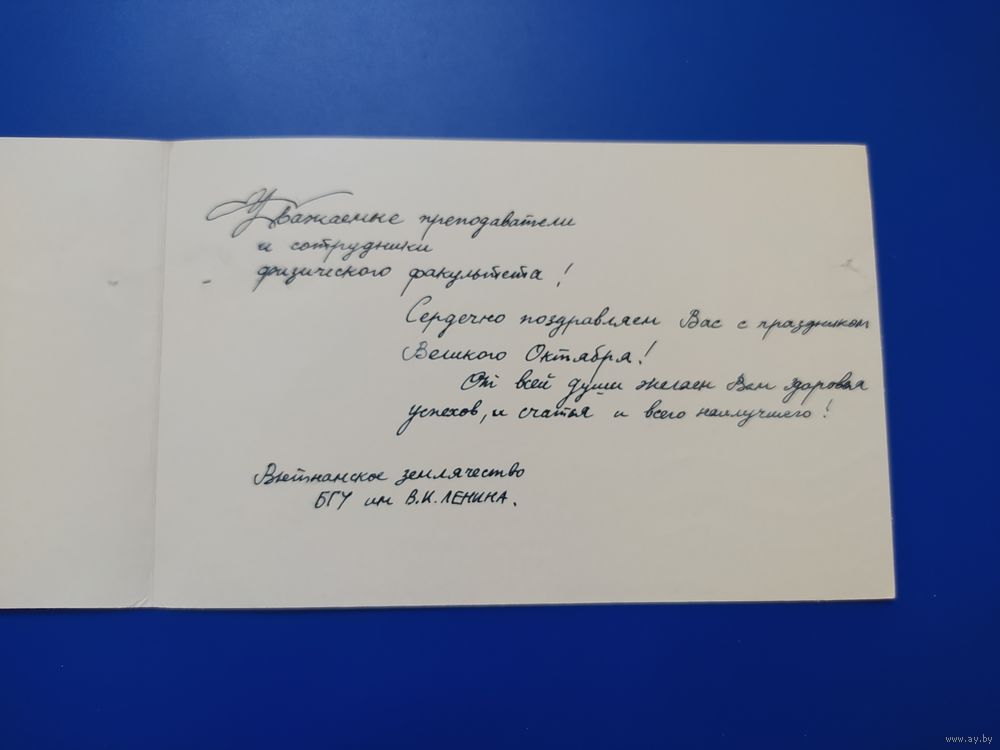 Уважаемые преподаватели
и сотрудники
физического факультета!
Сердечно поздравляем Вас с праздником
Великого Октября!
От всей души желаем Вам здоровья
успехов, и счастья и всего наилучшего!
Вьетнамское землячество
БГУ им В.И.ЛЕНИНА.
www.ay.by